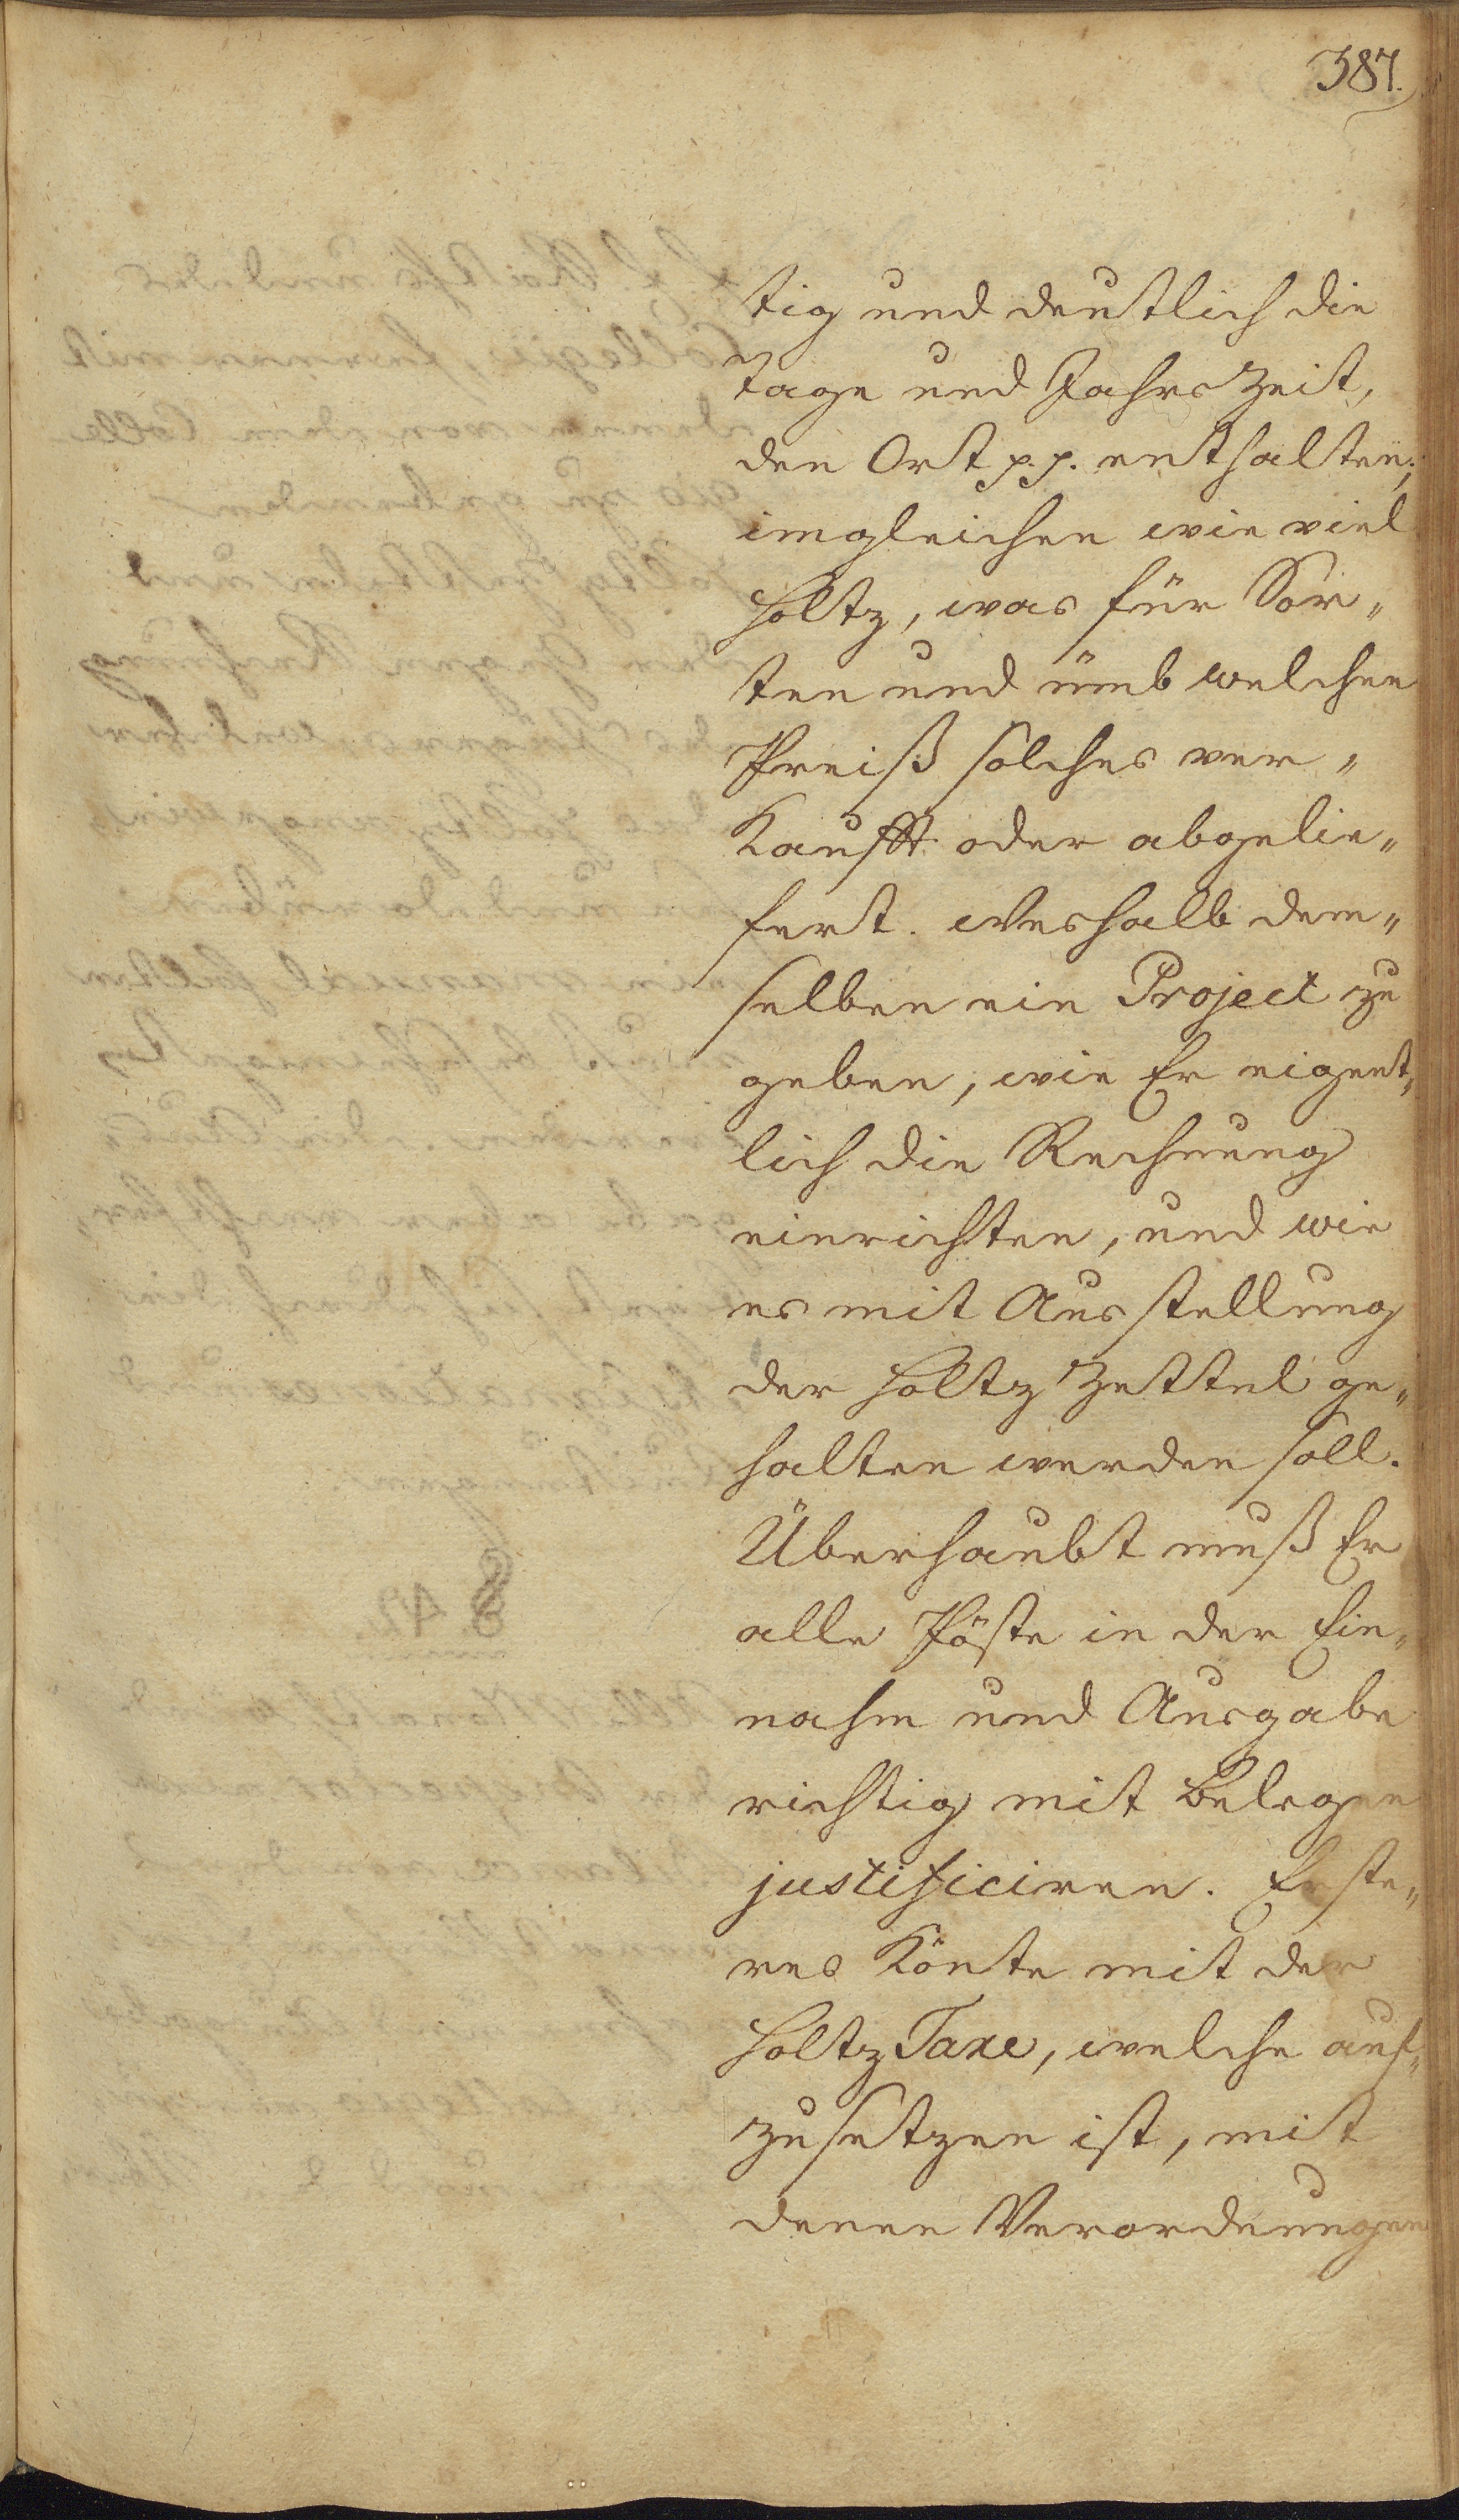 387.
tig und deutlich die
Tage und Jahrszeit,
den Ort p.p. enthalten,
imgleichen wie viel
Holtz, was für Sor„
ten und ümb welchen
Preiß solches ver„
Kaufft oder abgelie„
fert. Weshalb dem„
selben ein Project zu
geben, wie Er eigent„
lich die Rechnung
einrichten, und wie
es mit Ausstellung
der Holtz Zettel ge„
halten werden soll.
Überhaubt muß Er
alle Pöste in der Ein„
nahm und Ausgabe
richtig mit Belegen
justificiren. Erste„
res Könte mit der
Holtz Taxe, welche auf„
zusetzen ist, mit
denen Verordnungen